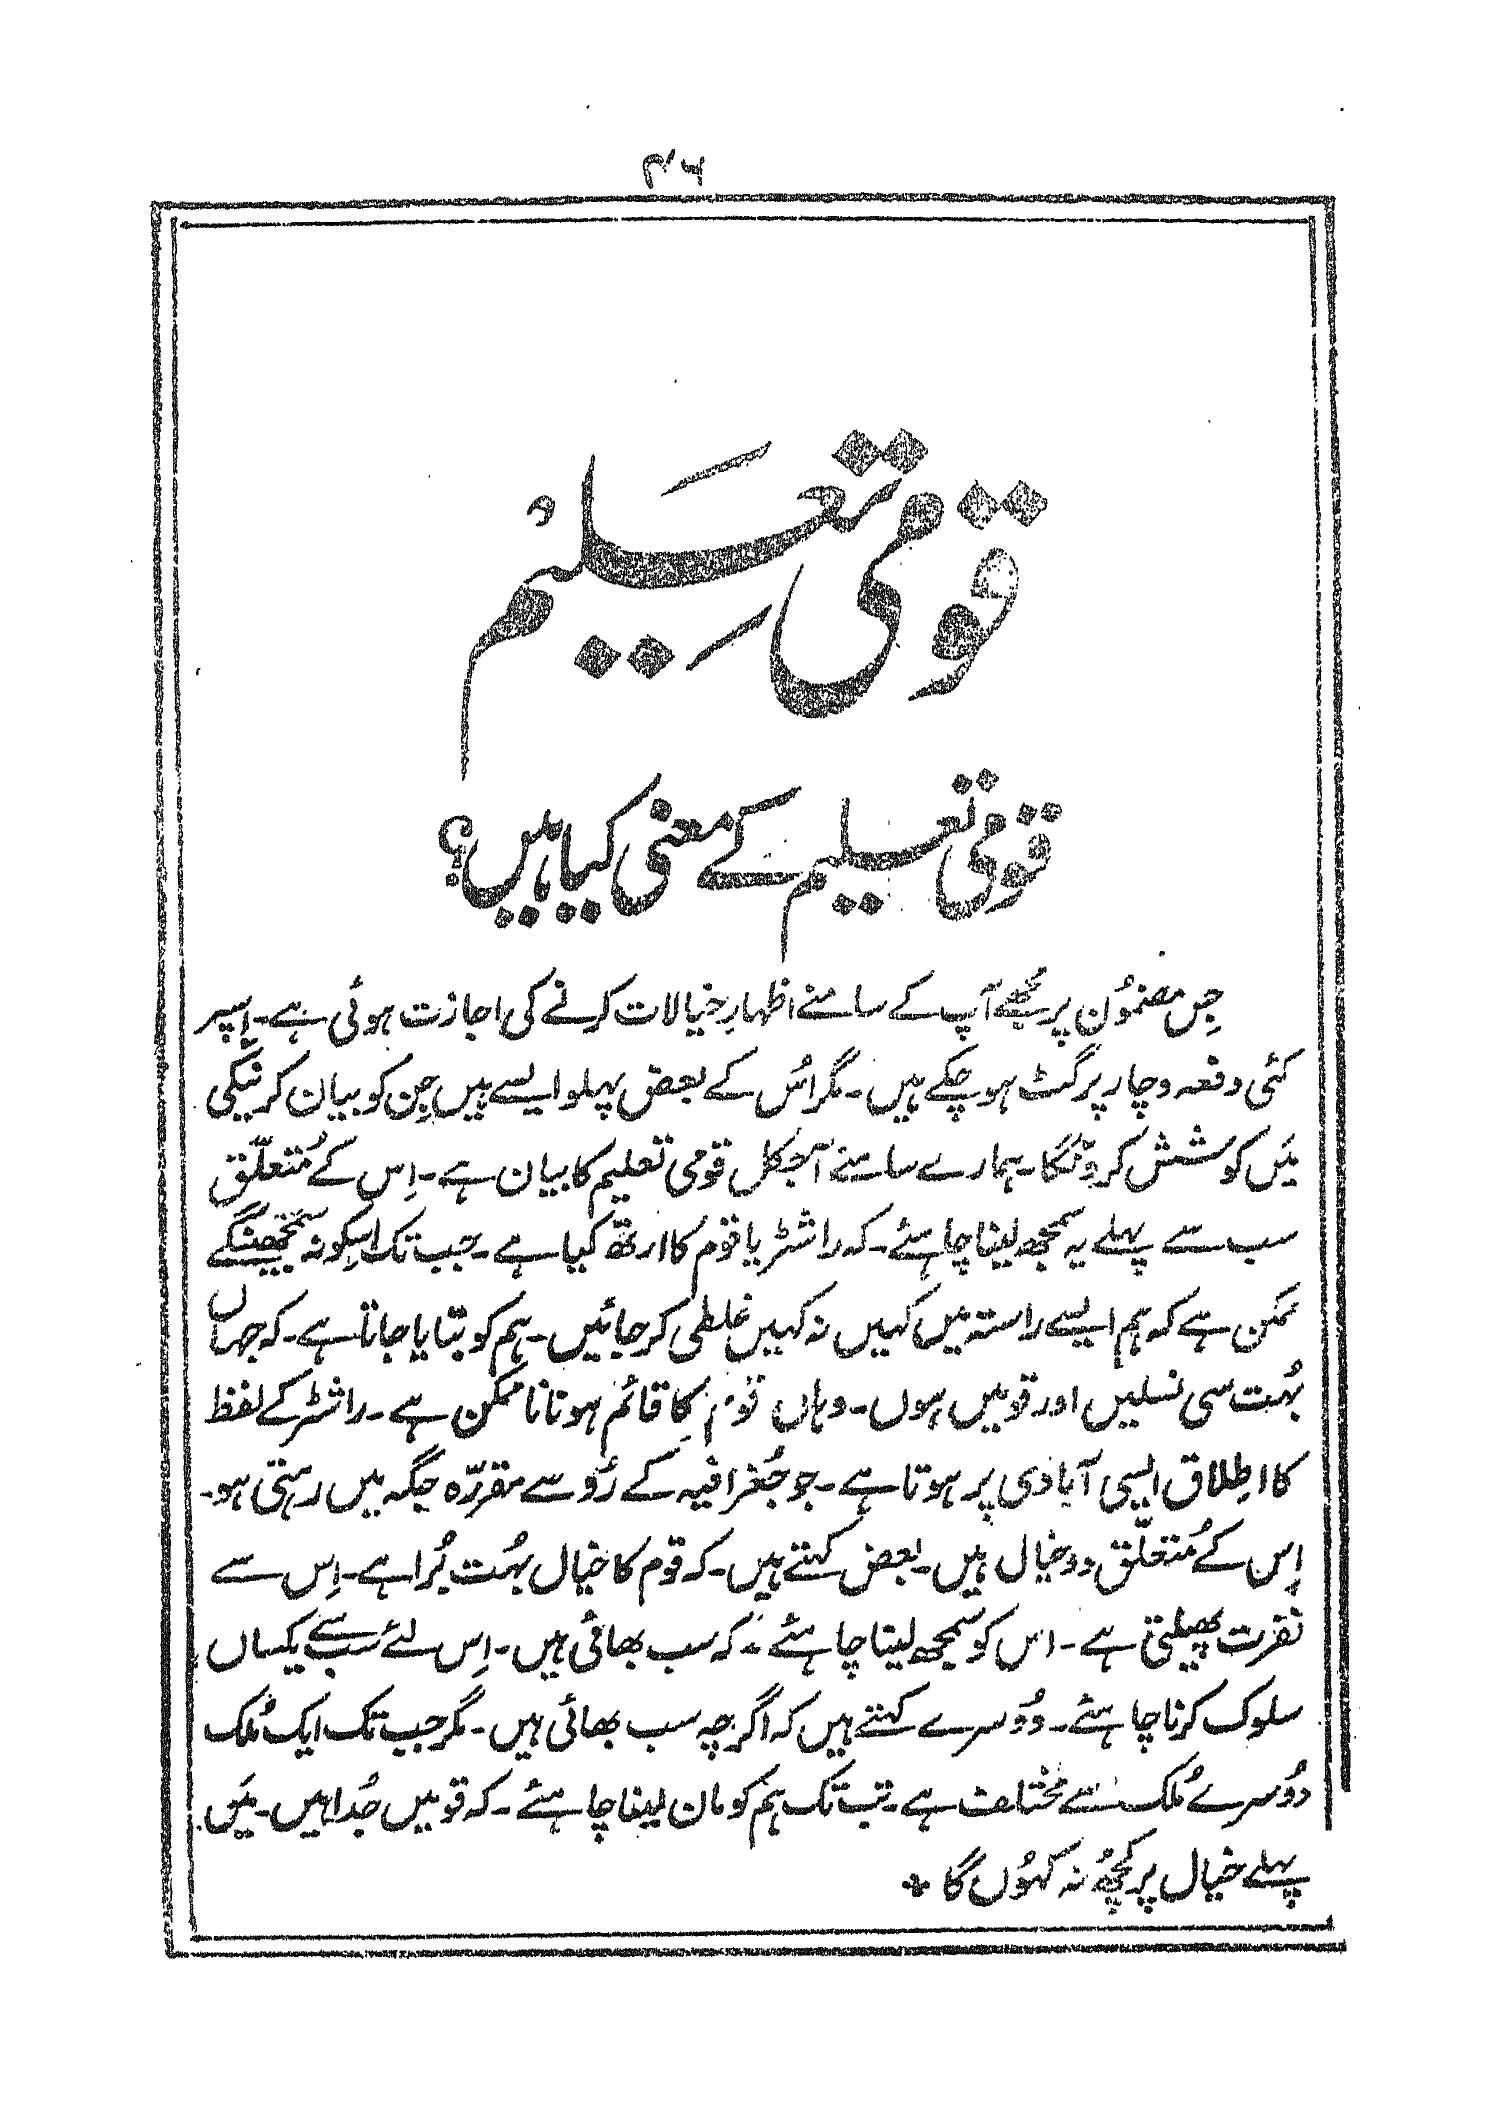 ۴۶
قومی تعلیم
قومی تعلیم کے معنی کیا ہیں؟
جِس مضمُون پر مُجھے آپ کے سامنے اظہارِ خیالات کرنے کی اجازت ہوئی ہے۔ اِسپر
کئی دفعہ وچار پرگٹ ہو چکے ہیں۔ مگر اُس کے بعض پہلو ایسے ہیں جِن کو بیان کرنیکی
مَیں کوشش کرونگا۔ ہمارے سامنے آجکل قومی تعلیم کا بیان ہے۔ اِس کے مُتعلّق
سب سے پہلے یہ سمجھ لینا چاہئے۔ کہ راشٹر یا قوم کا ارتھ کیا ہے۔ جب تک اسکو نہ سمجھینگے
ممکن ہے کہ ہم ایسے راستہ میں کہیں نہ کہیں غلطی کر جائیں۔ ہم کو بتایا جاتا ہے۔ کہ جہاں
بہُت سی نسلیں اور قومیں ہوں۔ وہاں قوم کا قائم ہونا ناممکن ہے۔ راشٹر کے لفظ
کا اطِلاق ایسی آبادی پر ہوتا ہے۔ جو جُغرافیہ کے رُو سے مقررّہ جگہ میں رہتی ہو۔
اِس کے مُتعلّق دو خیال ہیں۔ بعض کہتے ہیں۔ کہ قوم کا خیال بہُت بُرا ہے۔ اِس سے
نفرت پھیلتی ہے۔ اس کو سمجھ لینا چاہئے۔ کہ سب بھائی ہیں۔ اِس لئے سب سے یکساں
سلوک کرنا چاہئے۔ دُوسرے کہتے ہیں کہ اگرچہ سب بھائی ہیں۔ مگر جب تک ایک مُلک
دُوسرے مُلک سے مختلف ہے۔ تب تک ہم کو مان لینا چاہئے۔ کہ قومیں جُدا ہیں۔ مَیں
پہلے خیال پر کچُھ نہ کہوُں گا *